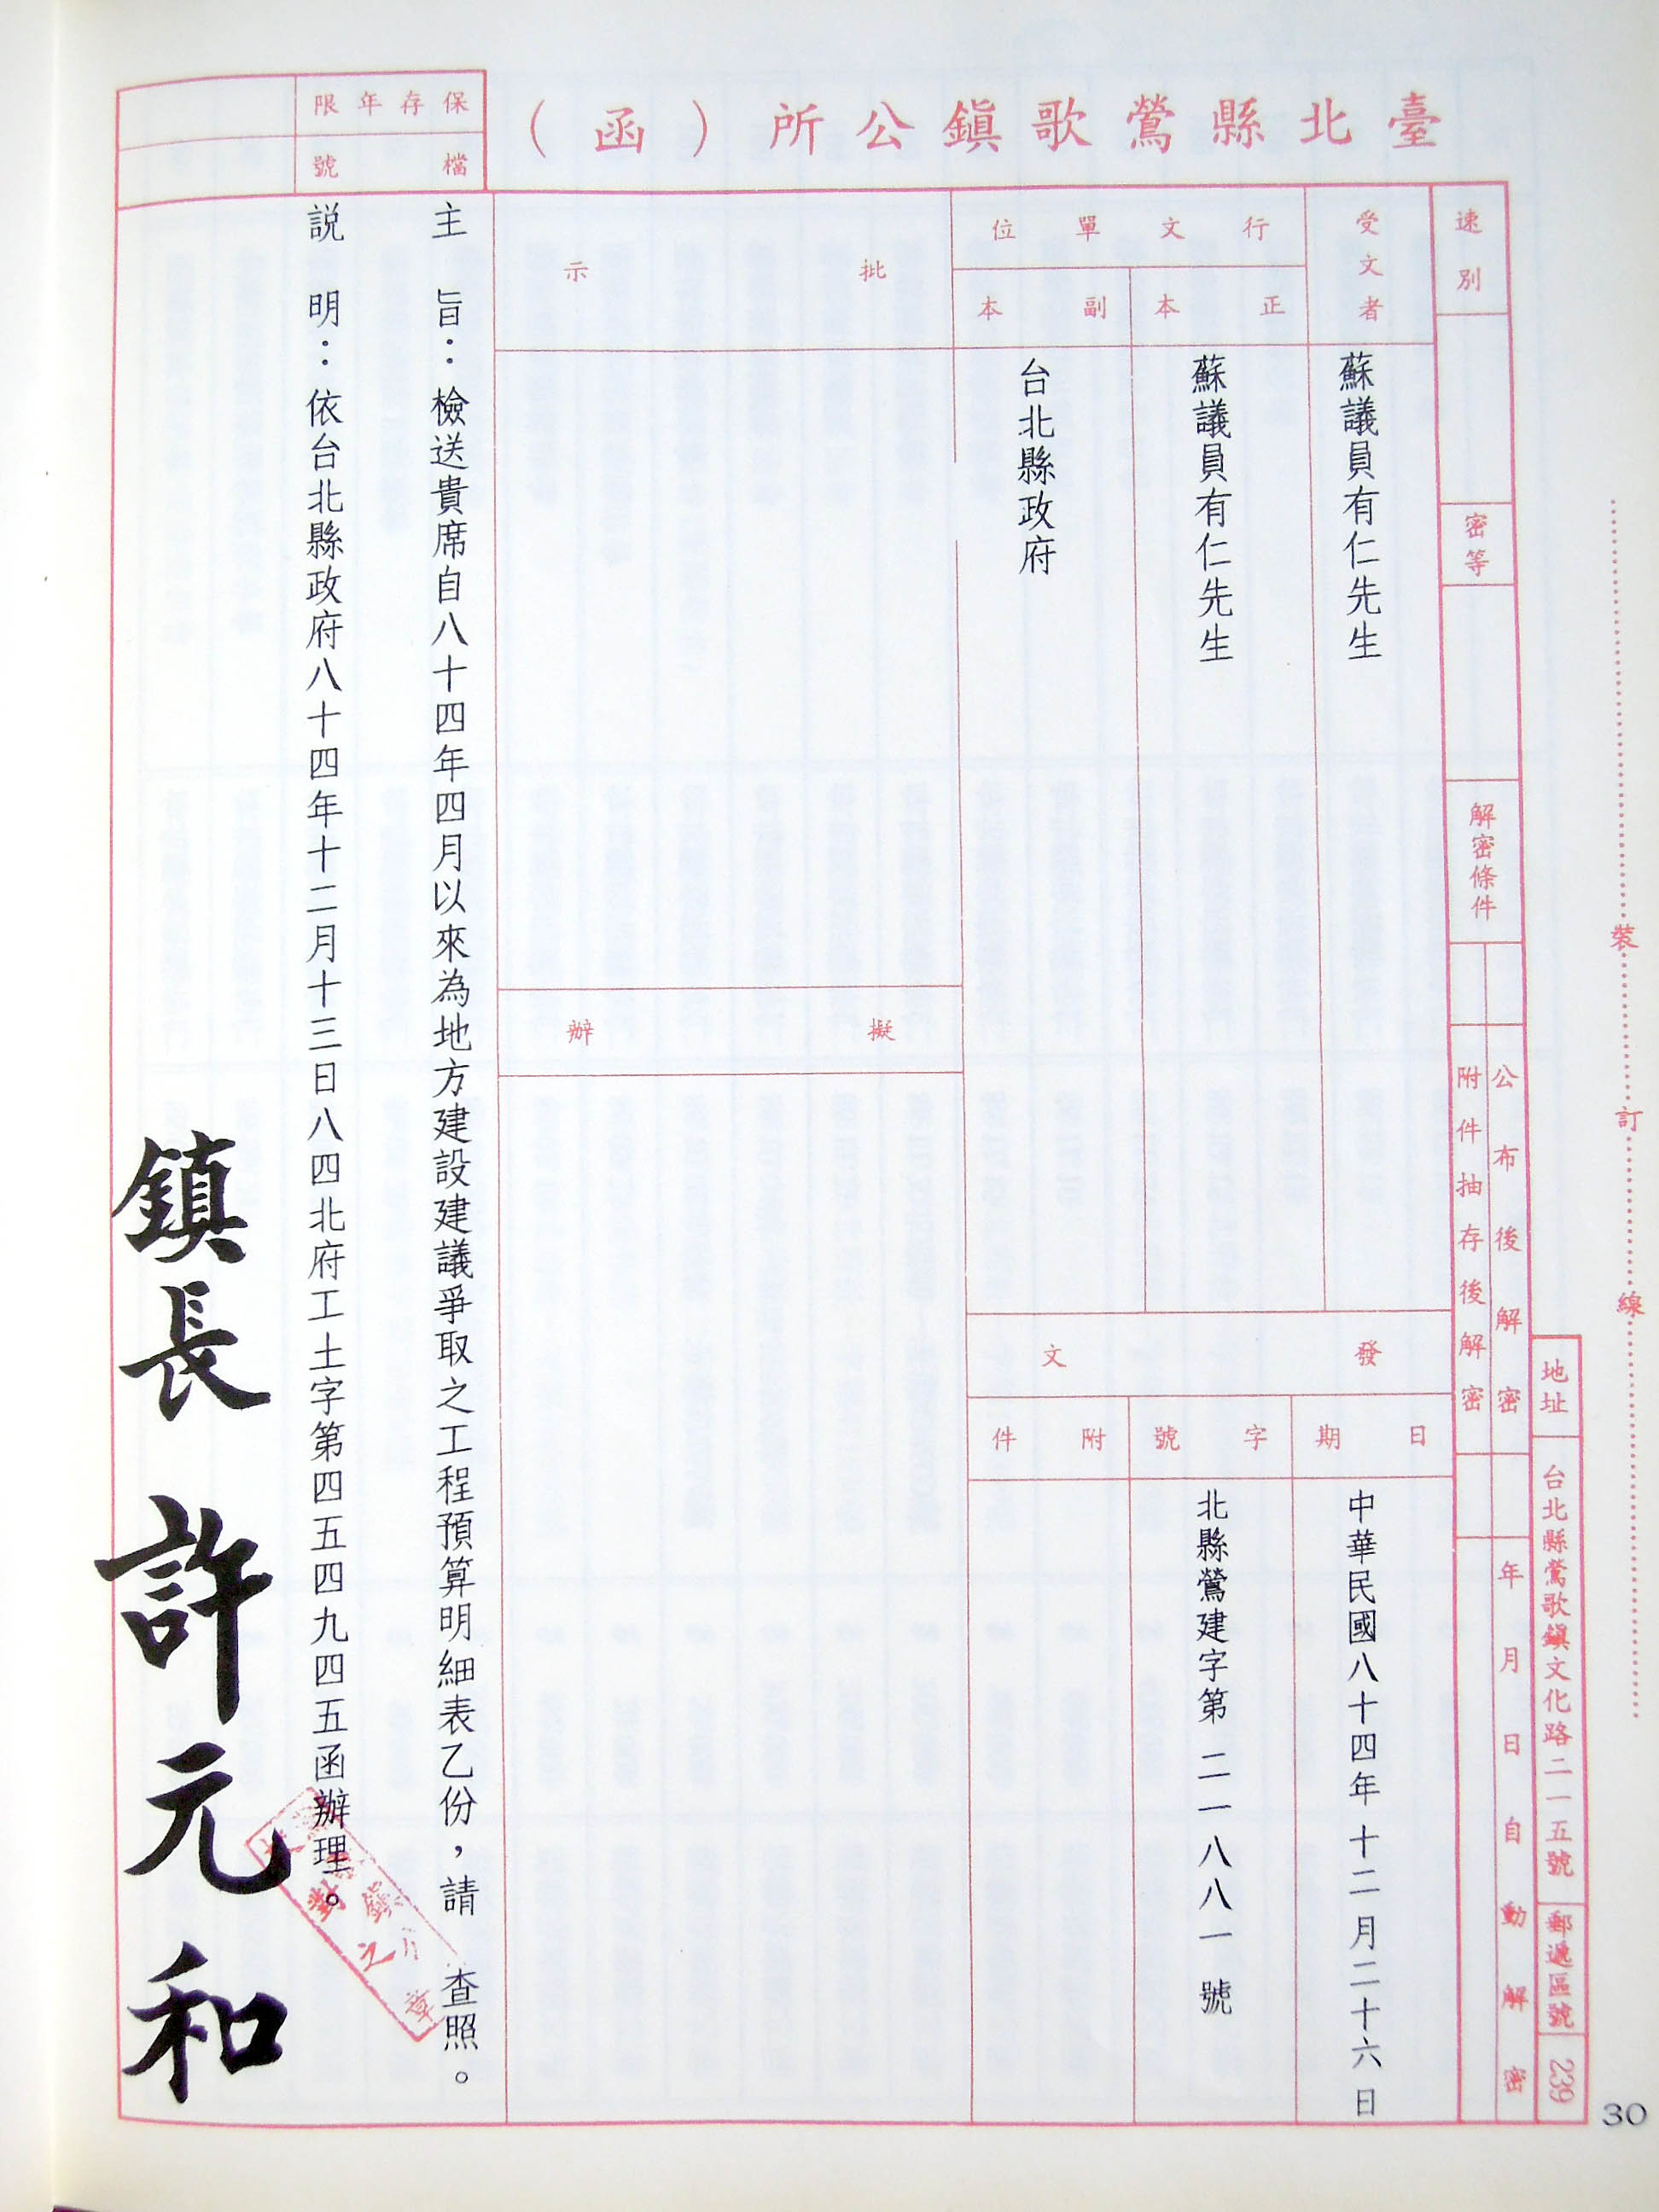 臺北縣鶯歌鎮公所(函)
保存年限
檔號
速別
密等
解密條件
公布後解密
附件抽存後解密
年月日自動解密
地址
台北縣鶯歌鎮文化路二一五號
郵遞區號
239
裝訂線
受文者
蘇議員有仁先生
行文單位
正本
蘇議員有仁先生
副本
台北縣政府
發文
日期
中華民國八十四年十二月二十六日
字號
北縣鶯建字第二一八八一號
附件
批示
擬辦
主旨：檢送貴席自八十四年四月以來為地方建設建議爭取之工程預算明細表乙份，請 查照。
説明：依台北縣政府八十四年十二月十三日八四北府工土字第四五四九四五函辦理。
鎮長 許元和
30